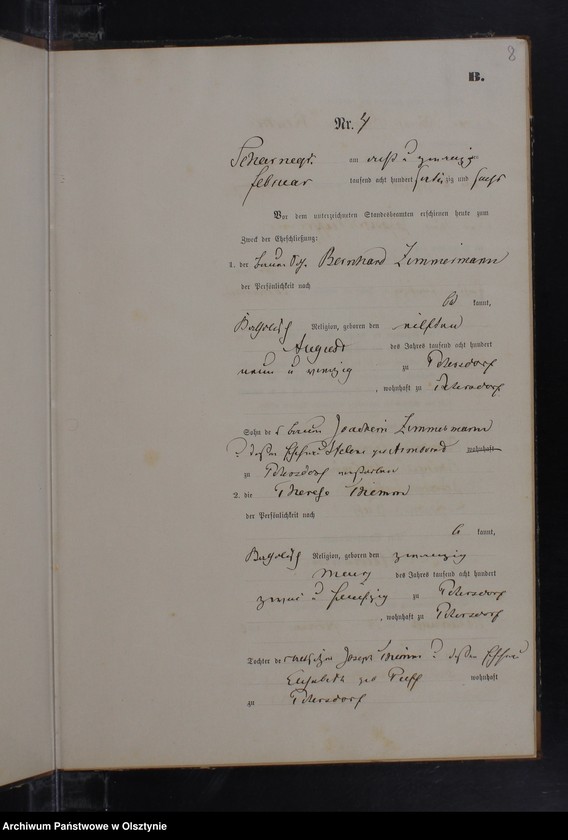 8
B.
Nr. 4
am acht u zwanzig
Februar tausend acht hundert siebzig und sechs
Vor dem unterzeichneten Standesbeamten erschienen heute zum
Zweck der Eheschließung:
1. der Bernhard Zimmermann
der Persönlichkeit nach
be kannt,
Religion, geboren den eilften
August des Jahres tausend acht hundert
neun u vierzig zu Petersdorf
, wohnhaft zu Petersdorf
Sohn des Joachim Zimmermann
u dessen Ehefrau Helene geb wohnhaft
zu Petersdorf verstorben
2. die Therese Thimm
der Persönlichkeit nach
be kannt,
Religion, geboren den zwanzig
März des Jahres tausend acht hundert
zwei u fünfzig zu Petersdorf
, wohnhaft zu Petersdorf
Tochter des Joseph Thimm u dessen Ehefrau
Elisabeth geb wohnhaft
zu Petersdorf
Archiwum Państwowe w Olsztynie